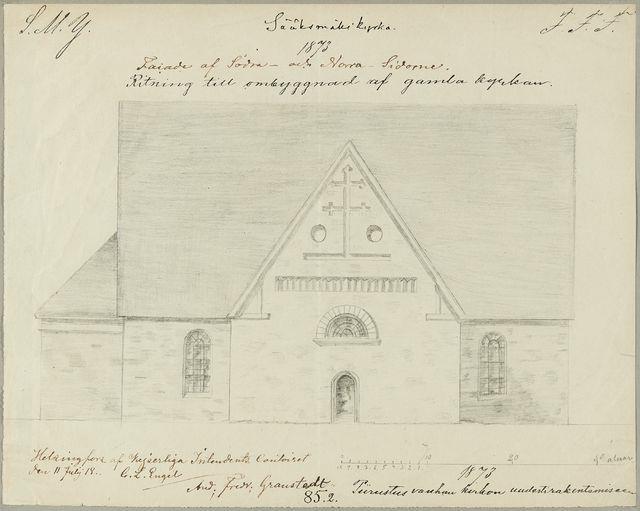 S. M. Y.
Sääksmäki kyrka.
F. F. F.
1873
Façade af Södra- och Norra-Sidorne.
Ritning till ombyggnad af gamla kyrkan.
Helsingfors af Kejserliga Intendents Contoiret
den 11 Julij 18..
C. L. Engel
And. Fredr. Granstedt
85.2.
10
20
alnar
1873
Piirustus vanhan kirkon uudestirakentamiseen